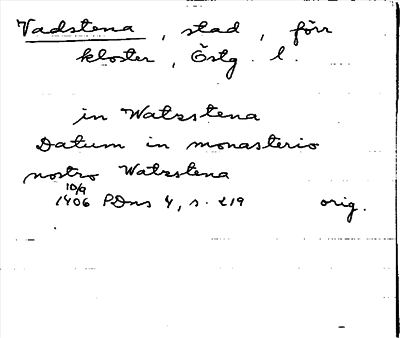 Vadstena, stad, förr
kloster, Östg. l.
in Watzstena
Datum in monasterio
nostro Watzstena
10/9
1406 PDns 4, s. 219 orig.